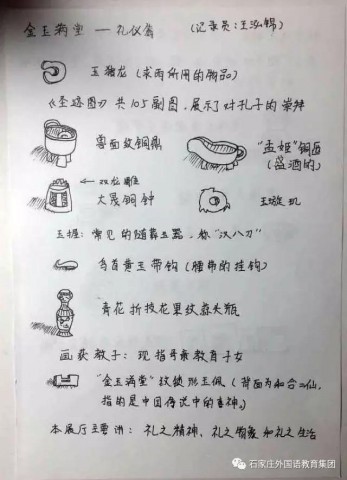 金玉满堂 — 礼仪篇 (记录员:王泓锦)
玉猪龙(求雨所用的物品)
《圣迹图》共105副图,展示了对孔子的崇拜
兽面纹铜鼎 "孟姬"铜匜(盛酒的)
← 双龙雕
大晟铜钟 玉璇玑
玉握:常见的随葬玉器,称"汉八刀"
鸟首黄玉带钩(腰带的挂钩)
青花折枝花果纹蒜头瓶
画荻教子:现指母亲教育子女
"金玉满堂"纹锁形玉佩(背面为和合二仙,
指的是中国传说中的喜神。)
本展厅主要讲:礼之精神、礼之物象和礼之生活
石家庄外国语教育集团